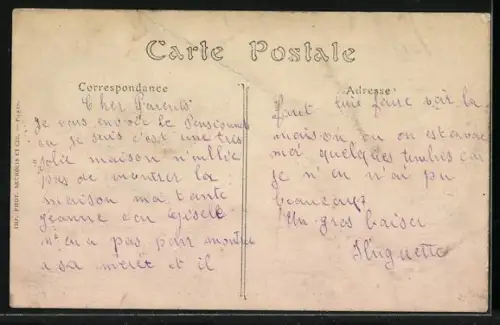 Carte Postale
Correspondance
Cher Parents
Je vous envoie le Pensionnat
ou je suis c'est une tres
jolie maison n'ublie
pas de montrer la
maison ma tante
jeanne car Gisele
n'en a pas pour montrer
a sa mere et il
Adresse
faut lui faire voir la
maison ou on est
moi quelques timbres car
je n'en n'ai pu
beaucoup
Un gros baiser
Huguette
IMP. PHOT. ET CIE. — Paris.